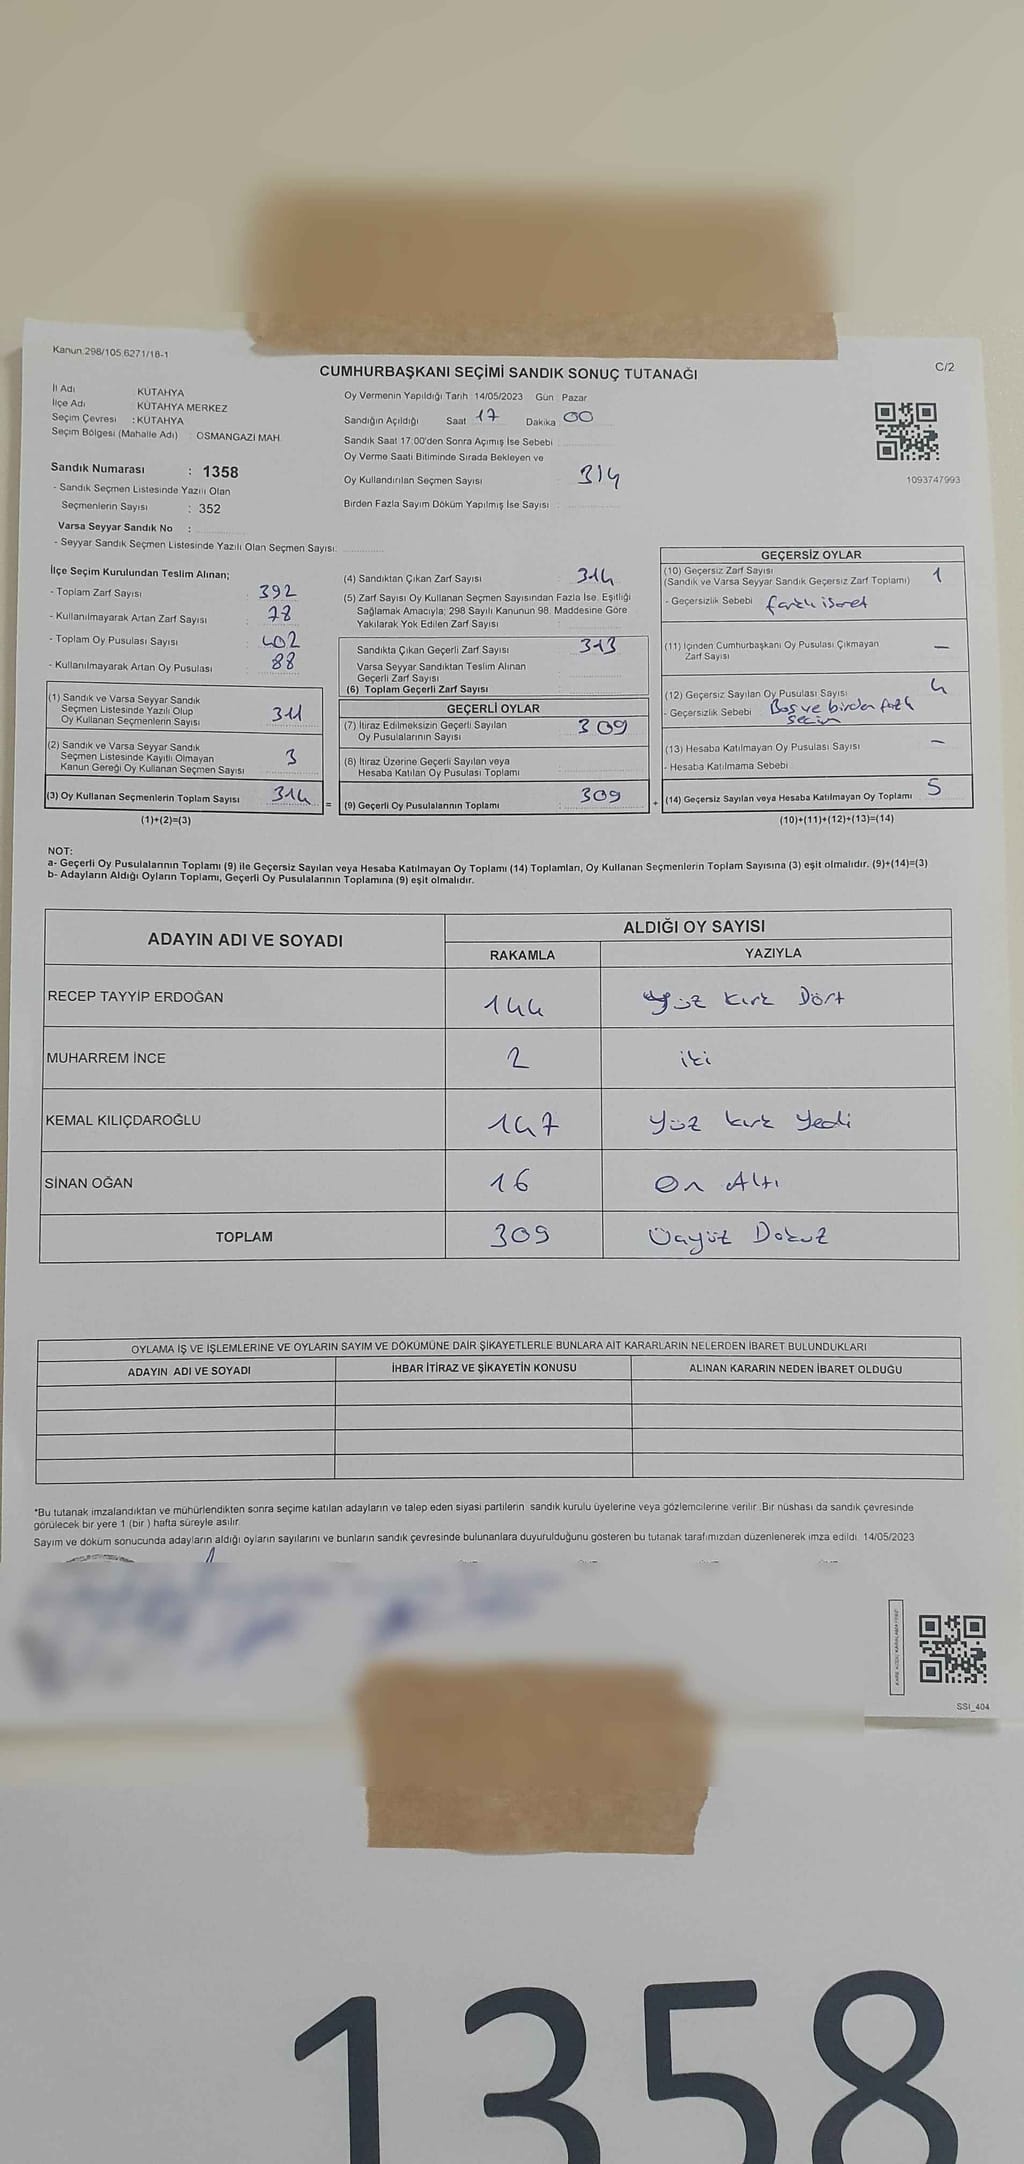 Kanun.298/105.6271/18-1
C/2
CUMHURBAŞKANI SEÇİMİ SANDIK SONUÇ TUTANAĞI
İl Adı : KÜTAHYA
İlçe Adı : KÜTAHYA MERKEZ
Seçim Çevresi : KÜTAHYA
Seçim Bölgesi (Mahalle Adı) : OSMANGAZİ MAH.
Sandık Numarası : 1358
- Sandık Seçmen Listesinde Yazılı Olan
Seçmenlerin Sayısı : 352
Varsa Seyyar Sandık No :
- Seyyar Sandık Seçmen Listesinde Yazılı Olan Seçmen Sayısı:
Oy Vermenin Yapıldığı Tarih 14/05/2023 Gün Pazar
Sandığın Açıldığı Saat 17 Dakika 00
Sandık Saat 17.00'den Sonra Açımış İse Sebebi
Oy Verme Saati Bitiminde Sırada Bekleyen ve
Oy Kullandırılan Seçmen Sayısı 314
Birden Fazla Sayım Döküm Yapılmış İse Sayısı :
1093747993
İlçe Seçim Kurulundan Teslim Alınan;
- Toplam Zarf Sayısı 392
- Kullanılmayarak Artan Zarf Sayısı 78
- Toplam Oy Pusulası Sayısı 402
- Kullanılmayarak Artan Oy Pusulası 88
(1) Sandık ve Varsa Seyyar Sandık
Seçmen Listesinde Yazılı Olup
Oy Kullanan Seçmenlerin Sayısı 311
(2) Sandık ve Varsa Seyyar Sandık
Seçmen Listesinde Kayıtlı Olmayan
Kanun Gereği Oy Kullanan Seçmen Sayısı 3
(3) Oy Kullanan Seçmenlerin Toplam Sayısı 314 =
(1)+(2)=(3)
(4) Sandıktan Çıkan Zarf Sayısı 314
(5) Zarf Sayısı Oy Kullanan Seçmen Sayısından Fazla İse, Eşitliği
Sağlamak Amacıyla; 298 Sayılı Kanunun 98. Maddesine Göre
Yakılarak Yok Edilen Zarf Sayısı
Sandıkta Çıkan Geçerli Zarf Sayısı 313
Varsa Seyyar Sandıktan Teslim Alınan
Geçerli Zarf Sayısı
(6) Toplam Geçerli Zarf Sayısı
GEÇERLİ OYLAR
(7) İtiraz Edilmeksizin Geçerli Sayılan
Oy Pusulalarının Sayısı 309
(8) İtiraz Üzerine Geçerli Sayılan veya
Hesaba Katılan Oy Pusulası Toplamı
(9) Geçerli Oy Pusulalarının Toplamı 309 +
GEÇERSİZ OYLAR
(10) Geçersiz Zarf Sayısı
(Sandık ve Varsa Seyyar Sandık Geçersiz Zarf Toplamı) 1
- Geçersizlik Sebebi farklı işaret
(11) İçinden Cumhurbaşkanı Oy Pusulası Çıkmayan
Zarf Sayısı —
(12) Geçersiz Sayılan Oy Pusulası Sayısı 4
- Geçersizlik Sebebi Boş ve birden fazla
seçim
(13) Hesaba Katılmayan Oy Pusulası Sayısı —
- Hesaba Katılmama Sebebi
(14) Geçersiz Sayılan veya Hesaba Katılmayan Oy Toplamı 5
(10)+(11)+(12)+(13)=(14)
NOT:
a- Geçerli Oy Pusulalarının Toplamı (9) ile Geçersiz Sayılan veya Hesaba Katılmayan Oy Toplamı (14) Toplamları, Oy Kullanan Seçmenlerin Toplam Sayısına (3) eşit olmalıdır. (9)+(14)=(3)
b- Adayların Aldığı Oyların Toplamı, Geçerli Oy Pusulalarının Toplamına (9) eşit olmalıdır.
ADAYIN ADI VE SOYADI ALDIĞI OY SAYISI
RAKAMLA YAZIYLA
RECEP TAYYİP ERDOĞAN 144 yüz kırk Dört
MUHARREM İNCE 2 iki
KEMAL KILIÇDAROĞLU 147 Yüz kırk Yedi
SİNAN OĞAN 16 On Altı
TOPLAM 309 Üçyüz Dokuz
OYLAMA İŞ VE İŞLEMLERİNE VE OYLARIN SAYIM VE DÖKÜMÜNE DAİR ŞİKAYETLERLE BUNLARA AİT KARARLARIN NELERDEN İBARET BULUNDUKLARI
ADAYIN ADI VE SOYADI İHBAR İTİRAZ VE ŞİKAYETİN KONUSU ALINAN KARARIN NEDEN İBARET OLDUĞU
*Bu tutanak imzalandıktan ve mühürlendikten sonra seçime katılan adayların ve talep eden siyasi partilerin sandık kurulu üyelerine veya gözlemcilerine verilir. Bir nüshası da sandık çevresinde
görülecek bir yere 1 (bir ) hafta süreyle asılır.
Sayım ve döküm sonucunda adayların aldığı oyların sayılarını ve bunların sandık çevresinde bulunanlara duyurulduğunu gösteren bu tutanak tarafımızdan düzenlenerek imza edildi. 14/05/2023
SSI_404
1358